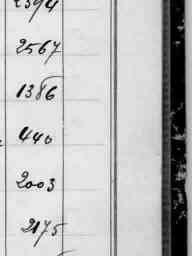 2394
2567
1386
440
2003
2175